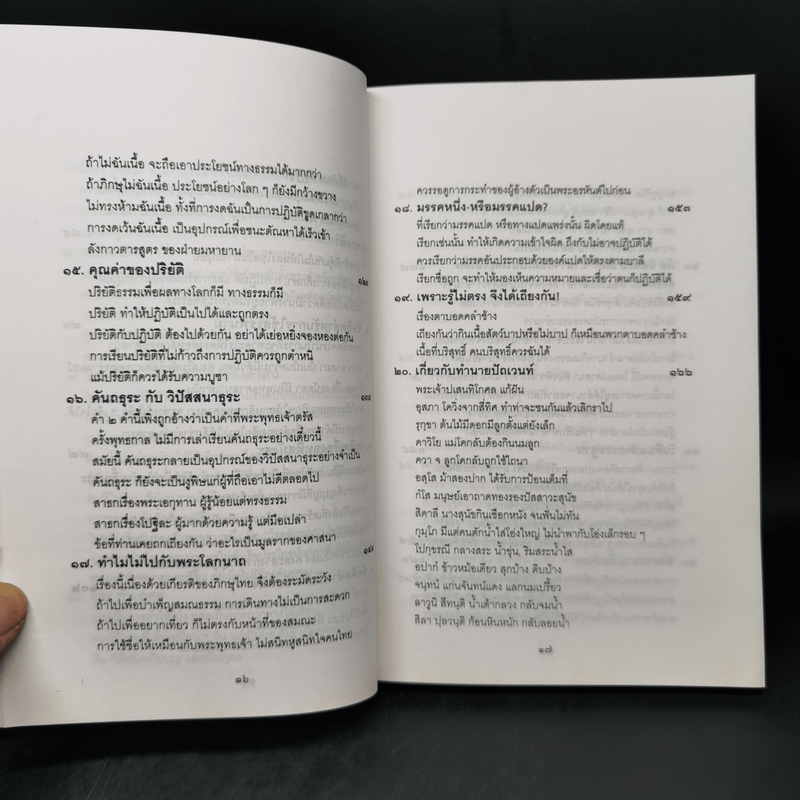 ถ้าไม่ฉันเนื้อ จะถือเอาประโยชน์ทางธรรมได้มากกว่า
ถ้าภิกษุไม่ฉันเนื้อ ประโยชน์อย่างโลก ๆ ก็ยังมีกว้างขวาง
ไม่ทรงห้ามฉันเนื้อ ทั้งที่การงดฉันเป็นการปฏิบัติขูดเกลากว่า
การงดเว้นฉันเนื้อ เป็นอุปกรณ์เพื่อชนะตัณหาได้เร็วเข้า
ลังกาวตารสูตร ของฝ่ายมหายาน
๑๕. คุณค่าของปริยัติ
ปริยัติธรรมเพื่อผลทางโลกก็มี ทางธรรมก็มี
ปริยัติ ทำให้ปฏิบัติเป็นไปได้และถูกตรง
ปริยัติกับปฏิบัติ ต้องไปด้วยกัน อย่าได้เย่อหยิ่งจองหองต่อกัน
การเรียนปริยัติที่ไม่ก้าวถึงการปฏิบัติควรถูกตำหนิ
แม้ปริยัติก็ควรได้รับความบูชา
๑๖. คันถธุระ กับ วิปัสสนาธุระ
คำ ๒ คำนี้เพิ่งถูกอ้างว่าเป็นคำที่พระพุทธเจ้าตรัส
ครั้งพุทธกาล ไม่มีการเล่าเรียนคันถธุระอย่างเดี๋ยวนี้
สมัยนี้ คันถธุระกลายเป็นอุปกรณ์ของวิปัสสนาธุระอย่างจำเป็น
คันถธุระ ก็ยังจะเป็นงูพิษแก่ผู้ที่ถือเอาไม่ดีตลอดไป
สาธกเรื่องพระเอกุทาน ผู้รู้น้อยแต่ทรงธรรม
สาธกเรื่องโปฐิละ ผู้มากด้วยความรู้ แต่มือเปล่า
ข้อที่ท่านเคยถกเถียงกัน ว่าอะไรเป็นมูลรากของศาสนา
๑๗. ทำไมไม่ไปกับพระโลกนาถ
เรื่องนี้เนื่องด้วยเกียรติของภิกษุไทย จึงต้องระมัดระวัง
ถ้าไปเพื่อบำเพ็ญสมณธรรม การเดินทางไม่เป็นการสะดวก
ถ้าไปเพื่ออยากเที่ยว ก็ไม่ตรงกับหน้าที่ของสมณะ
การใช้ชื่อให้เหมือนกับพระพุทธเจ้า ไม่สนิทหูสนิทใจคนไทย
๑๖
ควรรอดูการกระทำของผู้อ้างตัวเป็นพระอรหันต์ไปก่อน
๑๘. มรรคหนึ่ง-หรือมรรคแปด? ๑๕๓
ที่เรียกว่ามรรคแปด หรือทางแปดแพร่งนั้น ผิดโดยแท้
เรียกเช่นนั้น ทำให้เกิดความเข้าใจผิด ถึงกับไม่อาจปฏิบัติได้
ควรเรียกว่ามรรคอันประกอบด้วยองค์แปดให้ตรงตามบาลี
เรียกชื่อถูก จะทำให้มองเห็นความหมายและเชื่อว่าตนก็ปฏิบัติได้
๑๙. เพราะรู้ไม่ตรง จึงได้เถียงกัน! ๑๕๙
เรื่องตาบอดคลำช้าง
เถียงกันว่ากินเนื้อสัตว์บาปหรือไม่บาป ก็เหมือนพวกตาบอดคลำช้าง
เนื้อที่บริสุทธิ์ คนบริสุทธิ์ควรฉันได้
๒๐. เกี่ยวกับทำนายปัถเวนท์ ๑๖๖
พระเจ้าปเสนทิโกศล แก้ฝัน
อุสภา โควิ่งจากสี่ทิศ ทำท่าจะชนกันแล้วเลิกราไป
รุกขา ต้นไม้มีดอกมีลูกตั้งแต่ยังเล็ก
คาวิโย แม่โคกลับต้องกินนมลูก
ควา จ ลูกโคกลับถูกใช้ไถนา
อสฺโส ม้าสองปาก ได้รับการป้อนเต็มที่
กํโส มนุษย์เอาถาดทองรองปัสสาวะสุนัข
สิคาลี นางสุนัขกินเชือกหนัง จนฟั่นไม่ทัน
กุมฺโภ มีแต่คนตักน้ำใส่โอ่งใหญ่ ไม่นำพากับโอ่งเล็กรอบ ๆ
โปกฺขรณี กลางสระ น้ำขุ่น, ริมสระน้ำใส
อปากํ ข้าวหม้อเดียว สุกบ้าง ดิบบ้าง
จนฺทนํ แก่นจันทน์แดง แลกนมเปรี้ยว
ลาวูนิ สีทนฺติ น้ำเต้ากลวง กลับจมน้ำ
สิลา ปฺลวนฺติ ก้อนหินหนัก กลับลอยน้ำ
๑๗